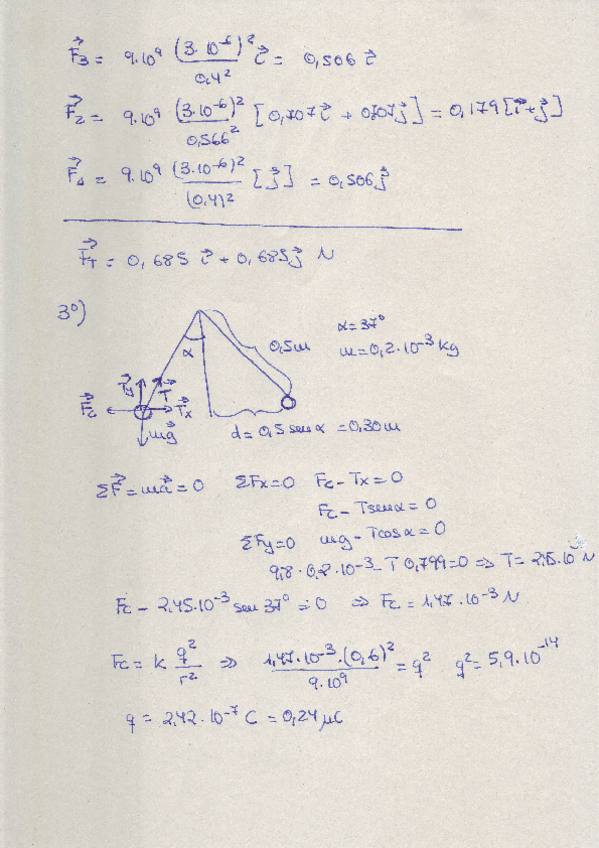 F⃗3 = 9·10⁹ (3·10⁻⁶)² / 0,4² i⃗ = 0,506 i⃗
F⃗2 = 9·10⁹ (3·10⁻⁶)² / 0,566² [0,707 i⃗ + 0,707 j⃗] = 0,179 [i⃗+j⃗]
F⃗1 = 9·10⁹ (3·10⁻⁶)² / (0,4)² [j⃗] = 0,506 j⃗
F⃗T = 0,685 i⃗ + 0,685 j⃗ N
3º)
α = 37º
α
0,5m
m = 0,2·10⁻³ kg
T⃗y
T⃗
F⃗c
T⃗x
mg⃗
d = 0,5 sen α = 0,30m
ΣF⃗ = ma⃗ = 0 ΣFx = 0 Fc - Tx = 0
Fc - T sen α = 0
ΣFy = 0 mg - T cos α = 0
9,8 · 0,2·10⁻³ - T 0,799 = 0 ⇒ T = 2,45·10⁻³ N
Fc - 2,45·10⁻³ sen 37º = 0 ⇒ Fc = 1,47·10⁻³ N
Fc = k q² / r² ⇒ 1,47·10⁻³·(0,6)² / 9·10⁹ = q² q² = 5,9·10⁻¹⁴
q = 2,42·10⁻⁷ C = 0,24 μC